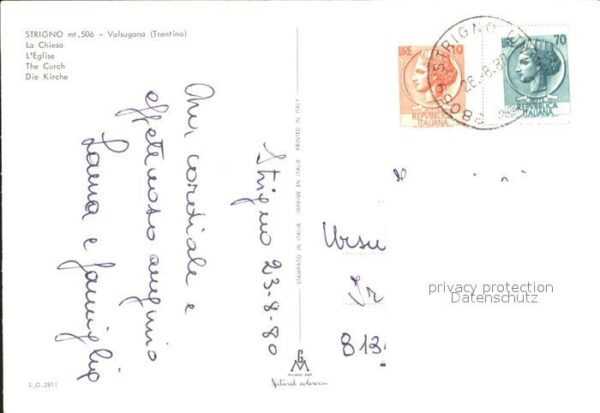 STRIGNO mt. 506 - Valsugana (Trentino)
La Chiesa
L'Eglise
The Curch
Die Kirche
cordiale e
affettuoso augurio
Laura e famiglia
Strigno 23-8-80
STAMPATO IN ITALIA IMPRIMÉ EN ITALIE PRINTED IN ITALY
LIRE 10
REPVBBLICA
ITALIANA
STRIGNO
26.8.80
LIRE 70
REPVBBLICA
ITALIANA
Ursu
813
privacy protection
Datenschutz
S.G. 2811
GM
Natural colours